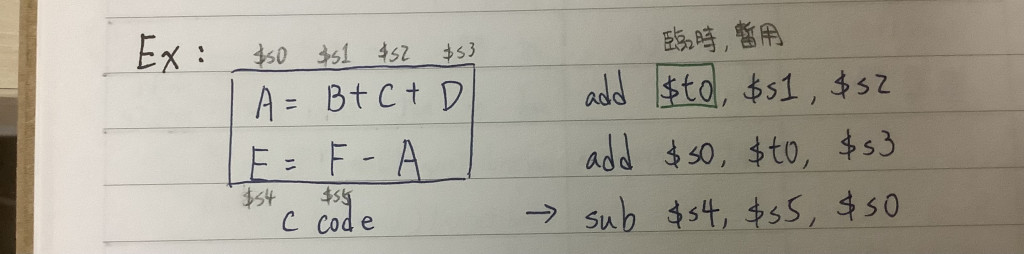 Ex: $s0 $s1 $s2 $s3
臨時, 暫用
A = B + C + D
add $t0, $s1, $s2
E = F - A
add $s0, $t0, $s3
$s4 $s5
C code
→ sub $s4, $s5, $s0